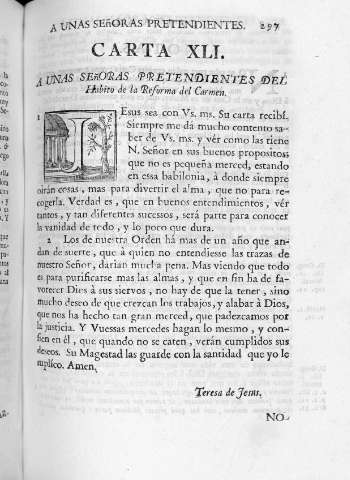 A UNAS SEñORAS PRETENDIENTES. 297
CARTA XLI.
A UNAS SEñORAS PRETENDIENTES DEL
Habito de la Reforma del Carmen.
1 JEsus sea con Vs. ms. Su carta recibí.
Siempre me dá mucho contento sa-
ber de Vs. ms. y vér como las tiene
N. Señor en sus buenos propositos:
que no es pequeña merced, estando
en essa babilonia, à donde siempre
oirán cosas, mas para divertir el alma, que no para re-
cogerla. Verdad es, que en buenos entendimientos, vér
tantos, y tan diferentes sucessos, será parte para conocer
la vanidad de todo, y lo poco que dura.
2 Los de nuestra Orden há mas de un año que an-
dan de suerte, que à quien no entendiesse las trazas de
nuestro Señor, darian mucha pena. Mas viendo que todo
es para purificarse mas las almas, y que en fin ha de fa-
vorecer Dios à sus siervos, no hay de que la tener, sino
mucho deseo de que crezcan los trabajos, y alabar à Dios,
que nos ha hecho tan gran merced, que padezcamos por
la justicia. Y Vuessas mercedes hagan lo mesmo, y con-
fien en él, que quando no se caten, verán cumplidos sus
deseos. Su Magestad las guarde con la santidad que yo le
suplico. Amen.
Teresa de Jesus.
NO-